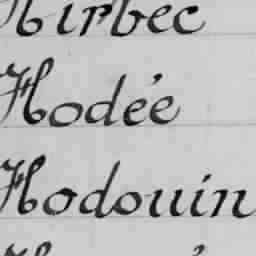 Hirbec
Hodée
Hodouin